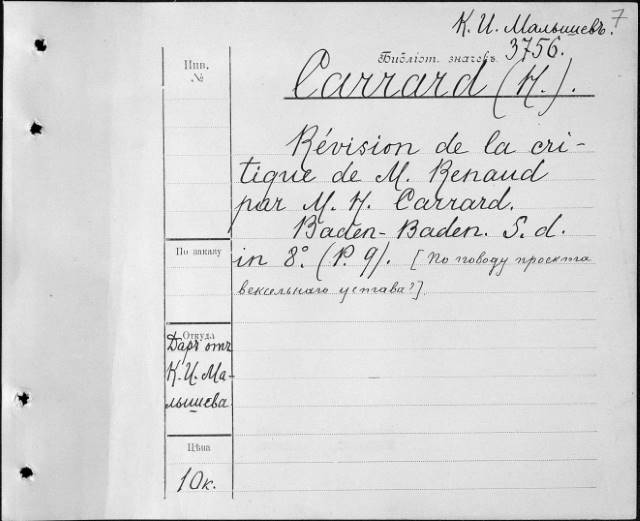 К. И. Малышевъ. 7
Библіот. значекъ 3756.
Инв.
№
Carrard (H.).
Révision de la cri-
tique de M. Renaud
par M. H. Carrard.
Baden-Baden. S. d.
По заказу
in 8°. (P. 9). [По поводу проекта
вексельнаго устава?].
Откуда
Даръ отъ
К. И. Ма-
лышева
Цѣна
10 к.